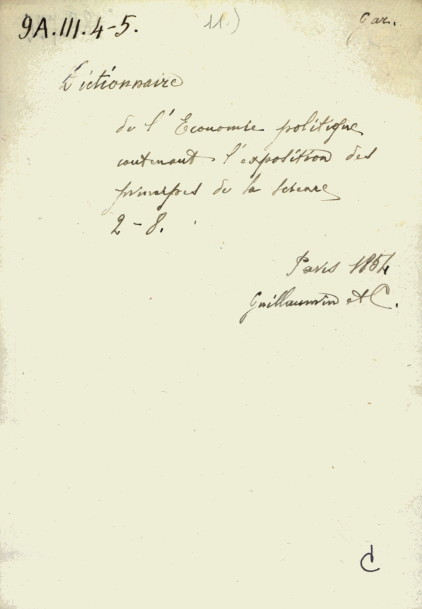 9A.III.4-5. 11) Gar.
Dictionnaire
de l'Economie politique
contenant l'exposition des
principes de la science
2-8.
Paris 1854
Guillaumin et C.